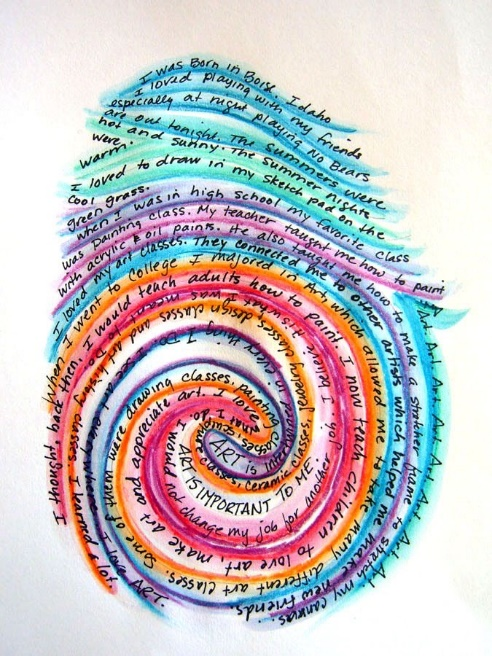 I was Born in Boise, Idaho.
I loved playing with my friends
especially at night playing No Bears
are out tonight. The summers were
hot and sunny. The summer nights
were warm.
I loved to draw in my sketch pad on the
cool green grass.
When I was in high school my favorite class
was painting class. My teacher taught me how to paint
with acrylic & oil paints. He also taught me how to make a stretcher frame to stretch my canvas.
I loved my art classes. They connected me to other artists which helped me make new friends.
When I went to college I majored in Art which allowed me to take many different art classes.
Some of them were drawing classes, painting classes,
ceramic classes, jewelry classes, design classes and
I thought, back then, I would teach adults how to paint
I now teach children to love art make art and appreciate art. I love
what I do. I would not change my job for another job!
ART IS IMPORTANT TO ME
ART is
Art Art Art Art Art Art Art Art